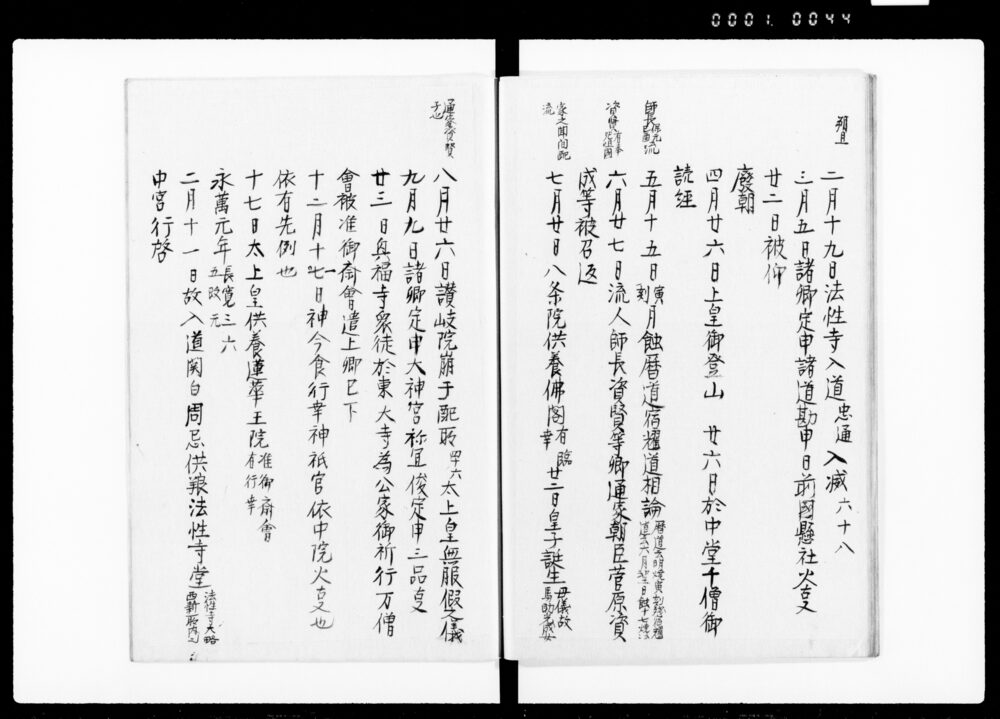 0001.0044
二月十九日法性寺入道忠通入滅六十八
三月五日諸卿定申諸道勘申日前國懸社火事
廿二日被仰
廢朝
四月廿六日上皇御登山 廿六日於中堂千僧御
読経
五月十五日寅刻月蝕暦道宿耀道相論
六月廿七日流人師長資賢等卿通家朝臣菅原資
成等被召返
七月廿日八条院供養佛閣有臨幸 廿二日皇子誕生母儀故
八月廿六日讃岐院崩于配所四十六太上皇無服假之儀
九月九日諸卿定申大神宮祢宜俊定申三品事
廿三日興福寺衆徒於東大寺為公家御祈行万僧
會被准御斎會遣上卿已下
十二月十一日神今食行幸神祇官依中院火事也
依有先例也
十七日太上皇供養蓮華王院准御斎會有行幸
永萬元年長寛三六五改元
二月十一日故入道関白周忌供養法性寺堂
中宮行啓